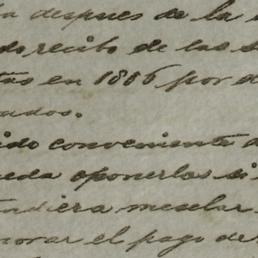 despues de la
do recibo de las
tas en 1886 por
ados.
ido conveniente
ueda oponerlas si
tendiera mezclar
morar el pago de